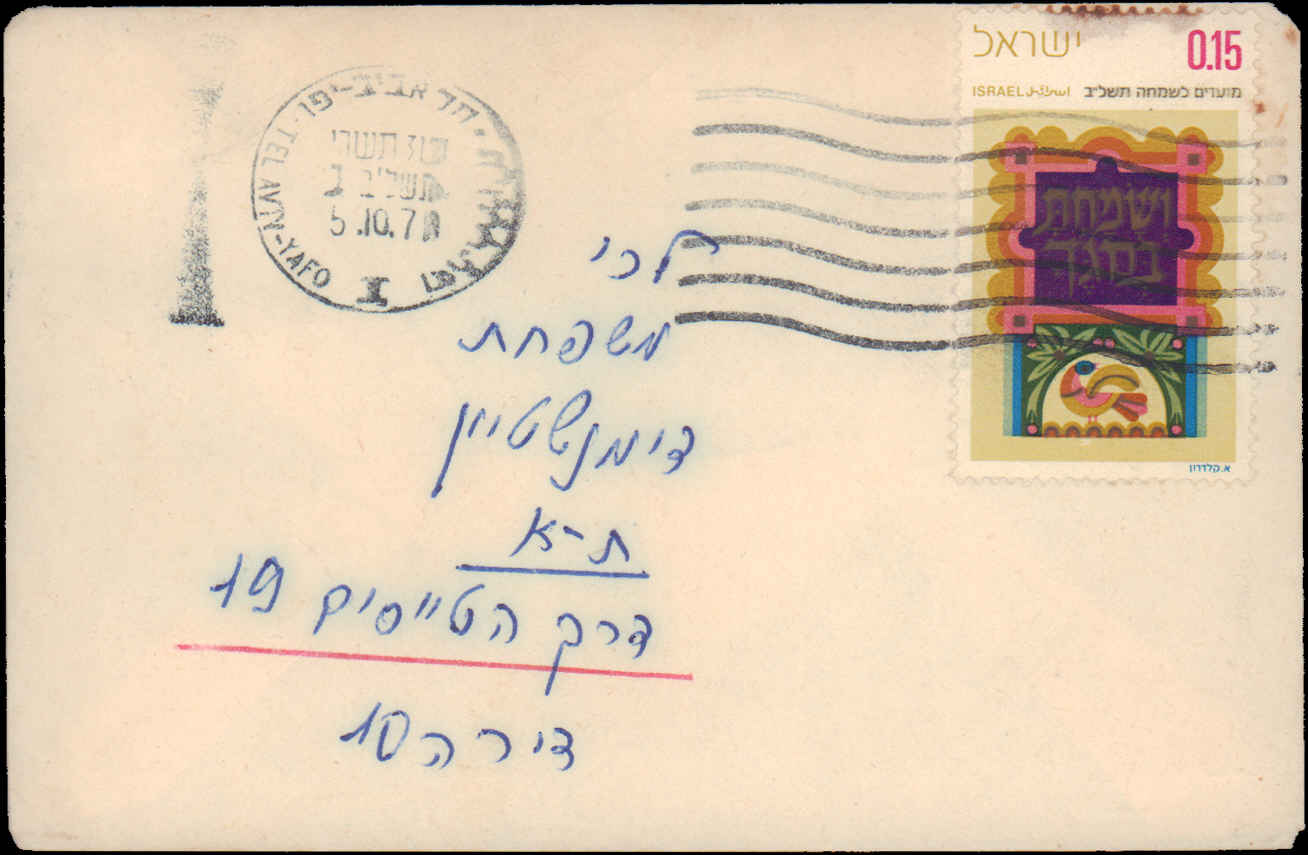 ישראל 0.15
ISRAEL اسرائيل מועדים לשמחה תשל"ב
ושמחת
בחגך
א.קלדרון
תל אביב-יפו
TEL AVIV-YAFO
תשרי
תשל"ב
5.10.7
לכ'
משפחת
דימנשטיין
ת-א
דרך הטייסים 19
דירה 10